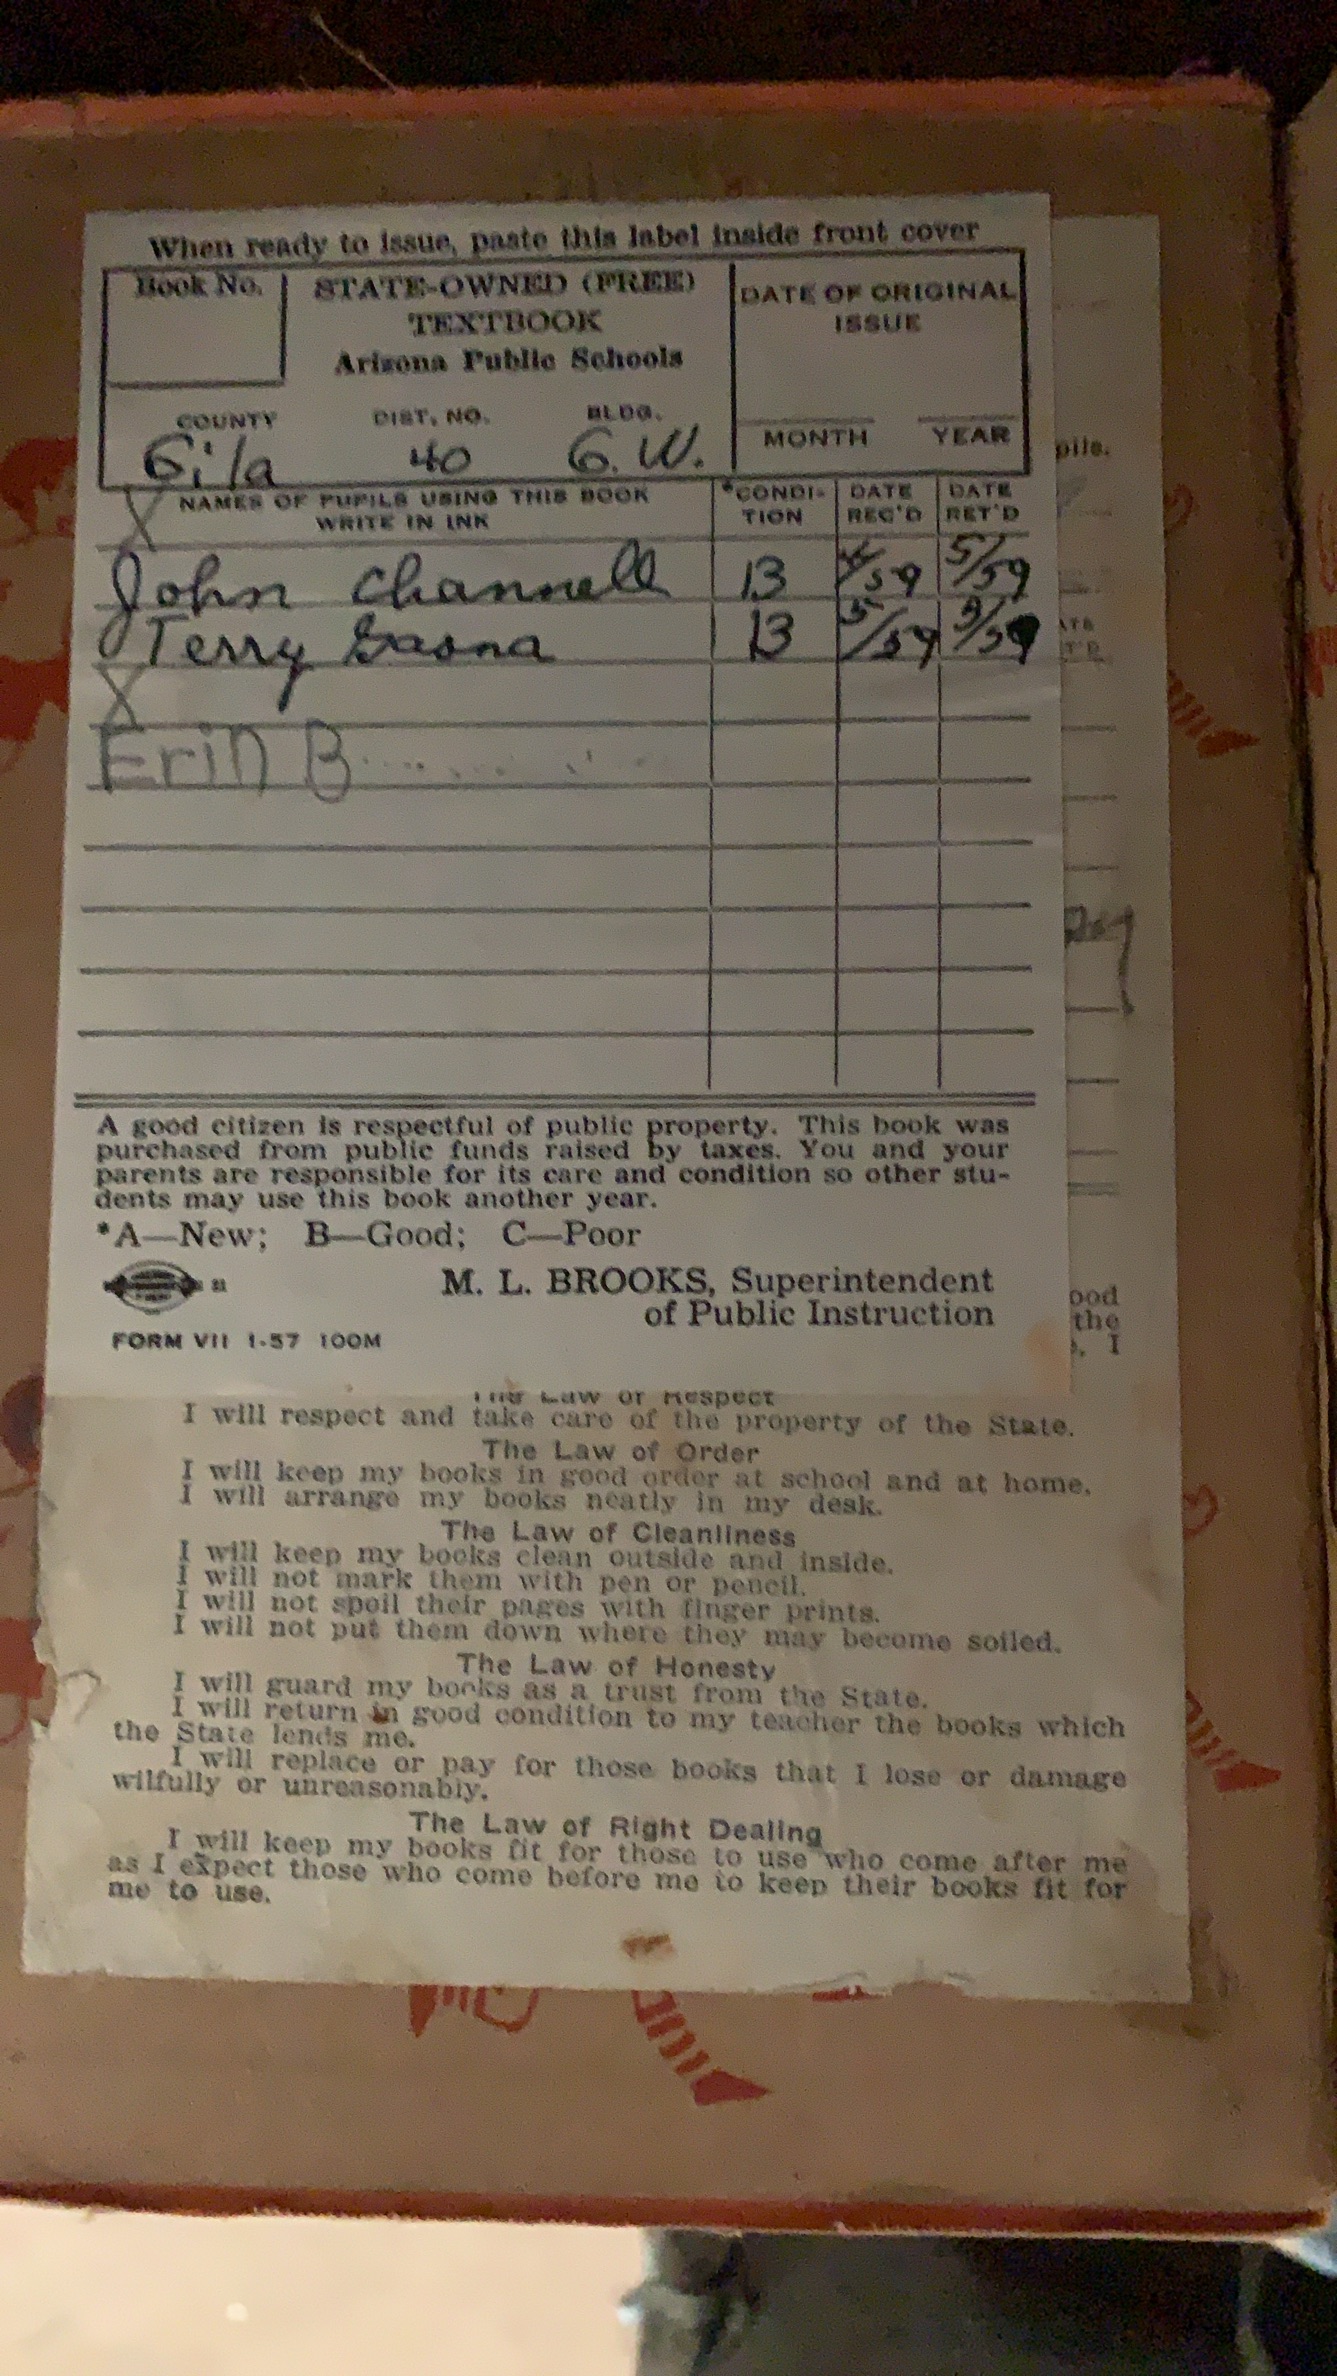 When ready to issue, paste this label inside front cover
Book No.
STATE-OWNED (FREE)
TEXTBOOK
Arizona Public Schools
DATE OF ORIGINAL
ISSUE
COUNTY DIST. NO. BLDG.
Gila 40 G.W.
MONTH YEAR
X
NAMES OF PUPILS USING THIS BOOK
WRITE IN INK
*CONDI-
TION
DATE
REC'D
DATE
RET'D
John Channell B 4/59 5/59
Terry B 5/59 5/59
X
Erin B
A good citizen is respectful of public property. This book was
purchased from public funds raised by taxes. You and your
parents are responsible for its care and condition so other stu-
dents may use this book another year.
*A—New; B—Good; C—Poor
M. L. BROOKS, Superintendent
of Public Instruction
FORM VII 1-57 100M
pils.
ood
the
I
The Law of Respect
I will respect and take care of the property of the State.
The Law of Order
I will keep my books in good order at school and at home.
I will arrange my books neatly in my desk.
The Law of Cleanliness
I will keep my books clean outside and inside.
I will not mark them with pen or pencil.
I will not spoil their pages with finger prints.
I will not put them down where they may become soiled.
The Law of Honesty
I will guard my books as a trust from the State.
I will return in good condition to my teacher the books which
the State lends me.
I will replace or pay for those books that I lose or damage
wilfully or unreasonably.
The Law of Right Dealing
I will keep my books fit for those to use who come after me
as I expect those who come before me to keep their books fit for
me to use.